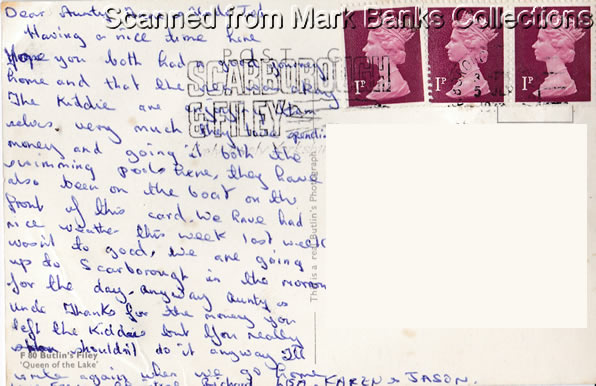 Scanned from Mark Banks Collections
Dear Aunty
Having a nice time here
Hope you both had a good journey
home and that the
The Kiddie are
selves very much they love spending
money and going it both the
swimming pools here, they have
also been on the boat on the
front of this card. We have had
nice weather this week last week
wasn't to good, we are going
up to Scarborough in the morning
for the day. Anyway Aunty &
Uncle Thanks for the money you
left the Kiddies but you really
shouldn't do it anyway I'll
write again when we go home
Richard LISA. KAREN & JASON.
POST C
SCARBOROUGH
& FILEY
1P
1P
1P
This is a real Butlin's Photograph
F 80 Butlin's Filey
'Queen of the Lake'